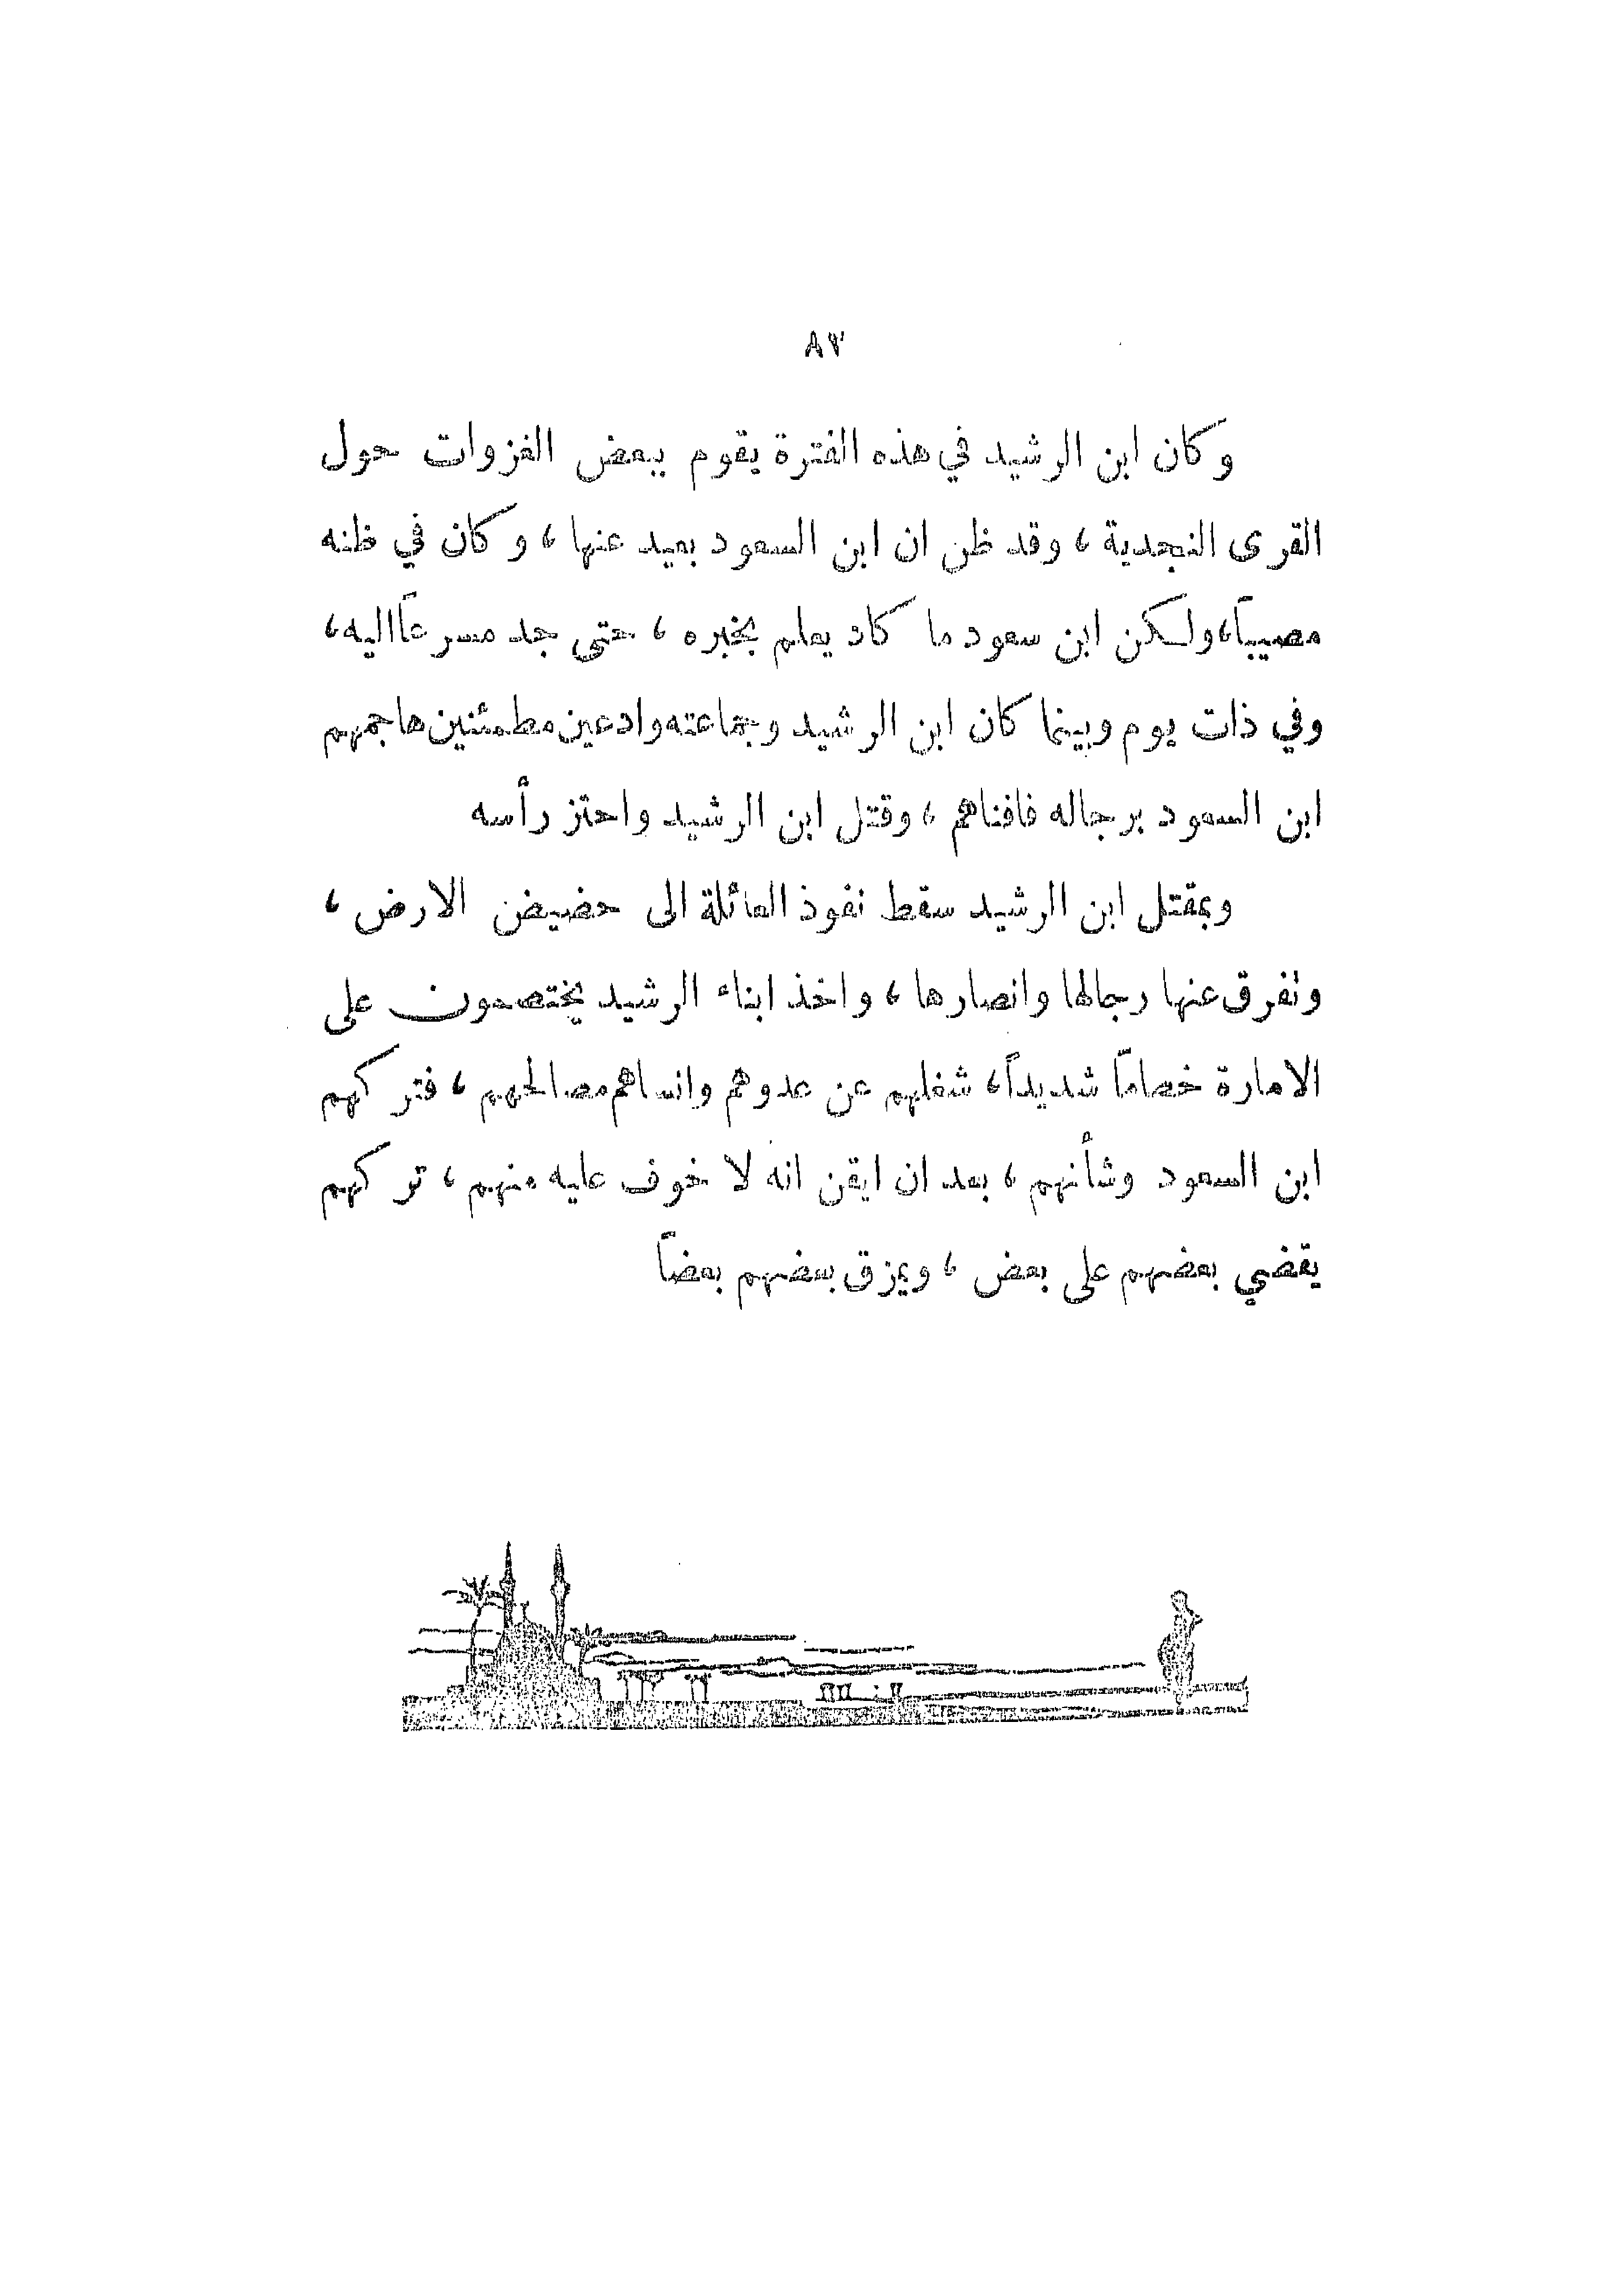 ٨٧
وكان ابن الرشيد في هذه الفترة يقوم ببعض الغزوات حول
القرى النجدية ، وقد ظن ان ابن السعود بعيد عنها ، وكان في ظنه
مصيباً، ولكن ابن سعود ما كاد يعلم بخبره ، حتى جد مسرعاً اليه ،
وفي ذات يوم وبينما كان ابن الرشيد وجماعته وادعين مطمئنين هاجمهم
ابن السعود برجاله فافناهم ، وقتل ابن الرشيد واحتز رأسه
وبمقتل ابن الرشيد سقط نفوذ العائلة الى حضيض الارض ،
وتفرق عنها رجالها وانصارها ، واخذ ابناء الرشيد يختصمون على
الامارة خصاماً شديداً ، شغلهم عن عدوهم وانساهم مصالحهم ، فتركهم
ابن السعود وشأنهم ، بعد ان ايقن انه لا خوف عليه منهم ، تركهم
يقضي بعضهم على بعض ، ويمزق بعضهم بعضاً